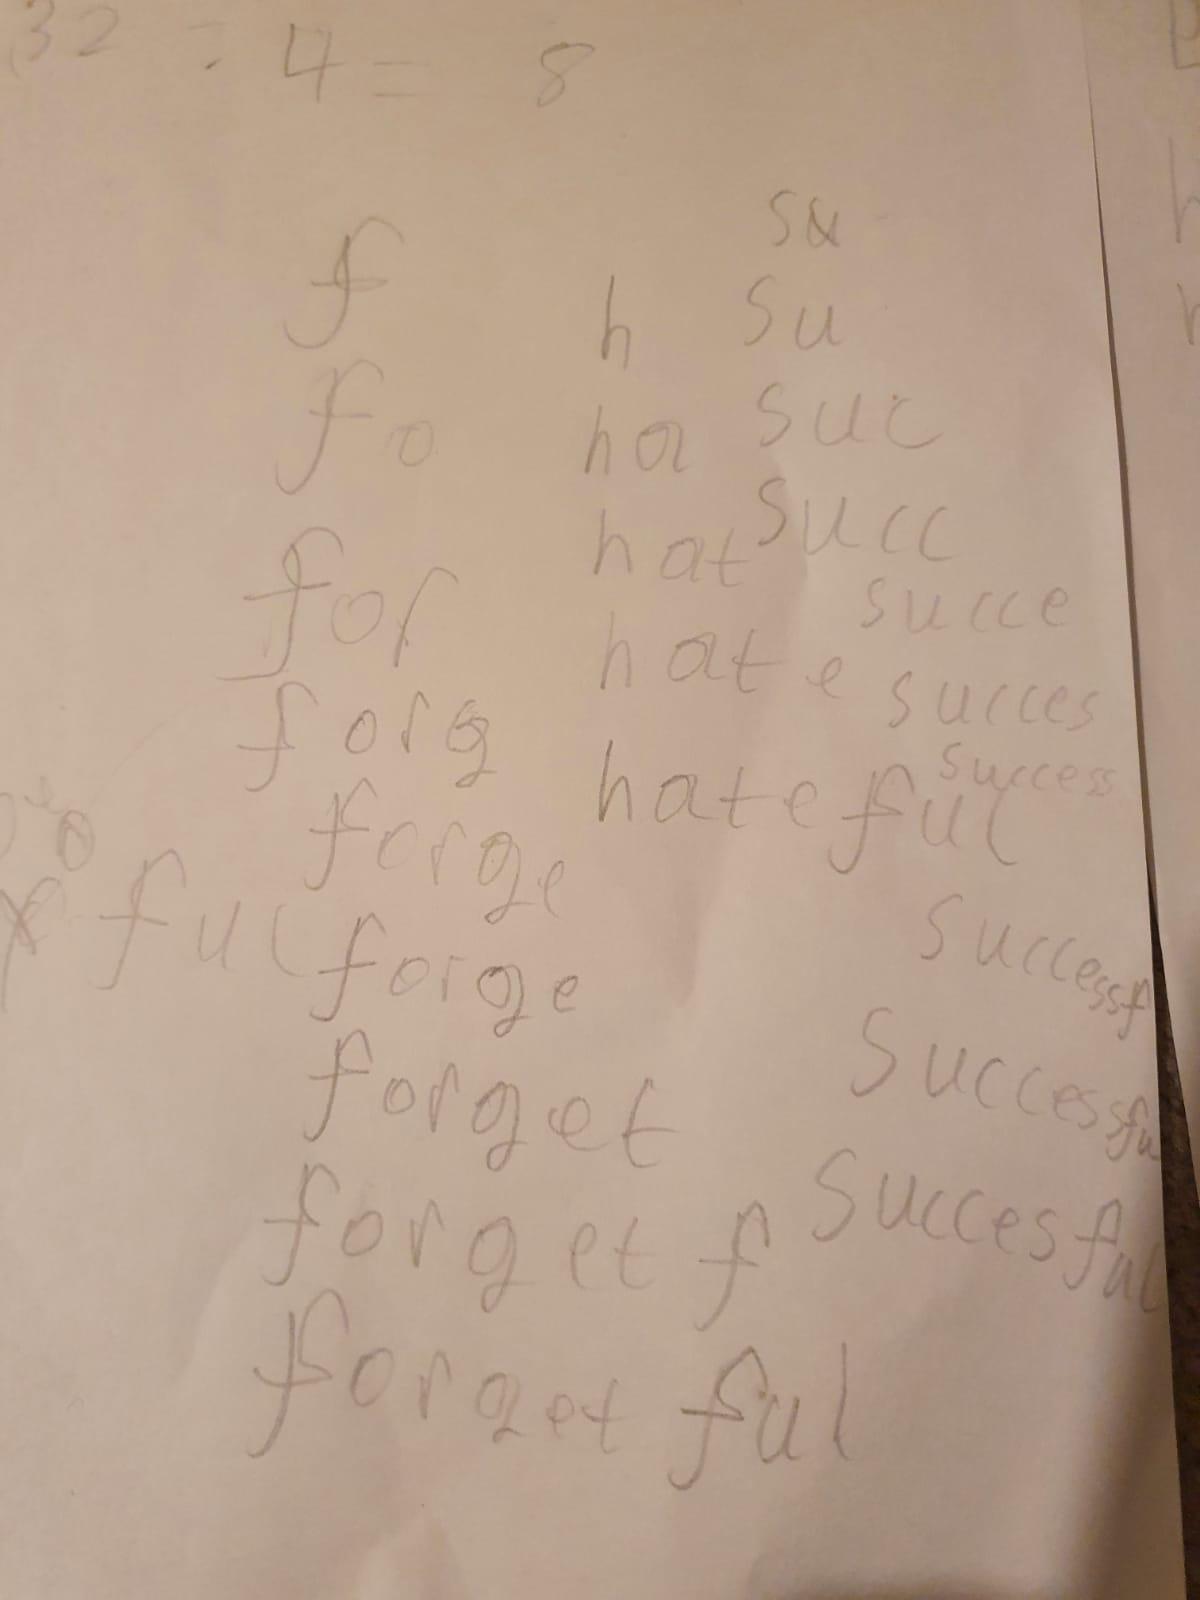 32 ÷ 4 = 8
f
fo
for
forg
forge
forge
forget
forget f
forget ful
ful
h
ha
hat
hate
hateful
su
su
suc
succ
succe
succes
success
successf
successfu
succesful